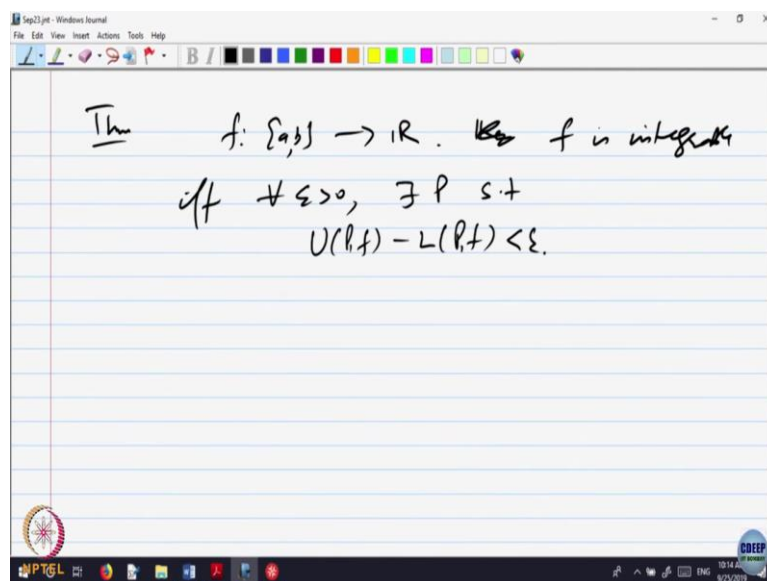 Sep23.jnt - Windows Journal
File Edit View Insert Actions Tools Help
B I
Thm f: [a,b] → IR. f is integrable
iff ∀ ε>0, ∃ P s.t
U(P,f) - L(P,f) < ε.
NPTEL
CDEEP
IIT BOMBAY
ENG
10:14 A
9/25/2019